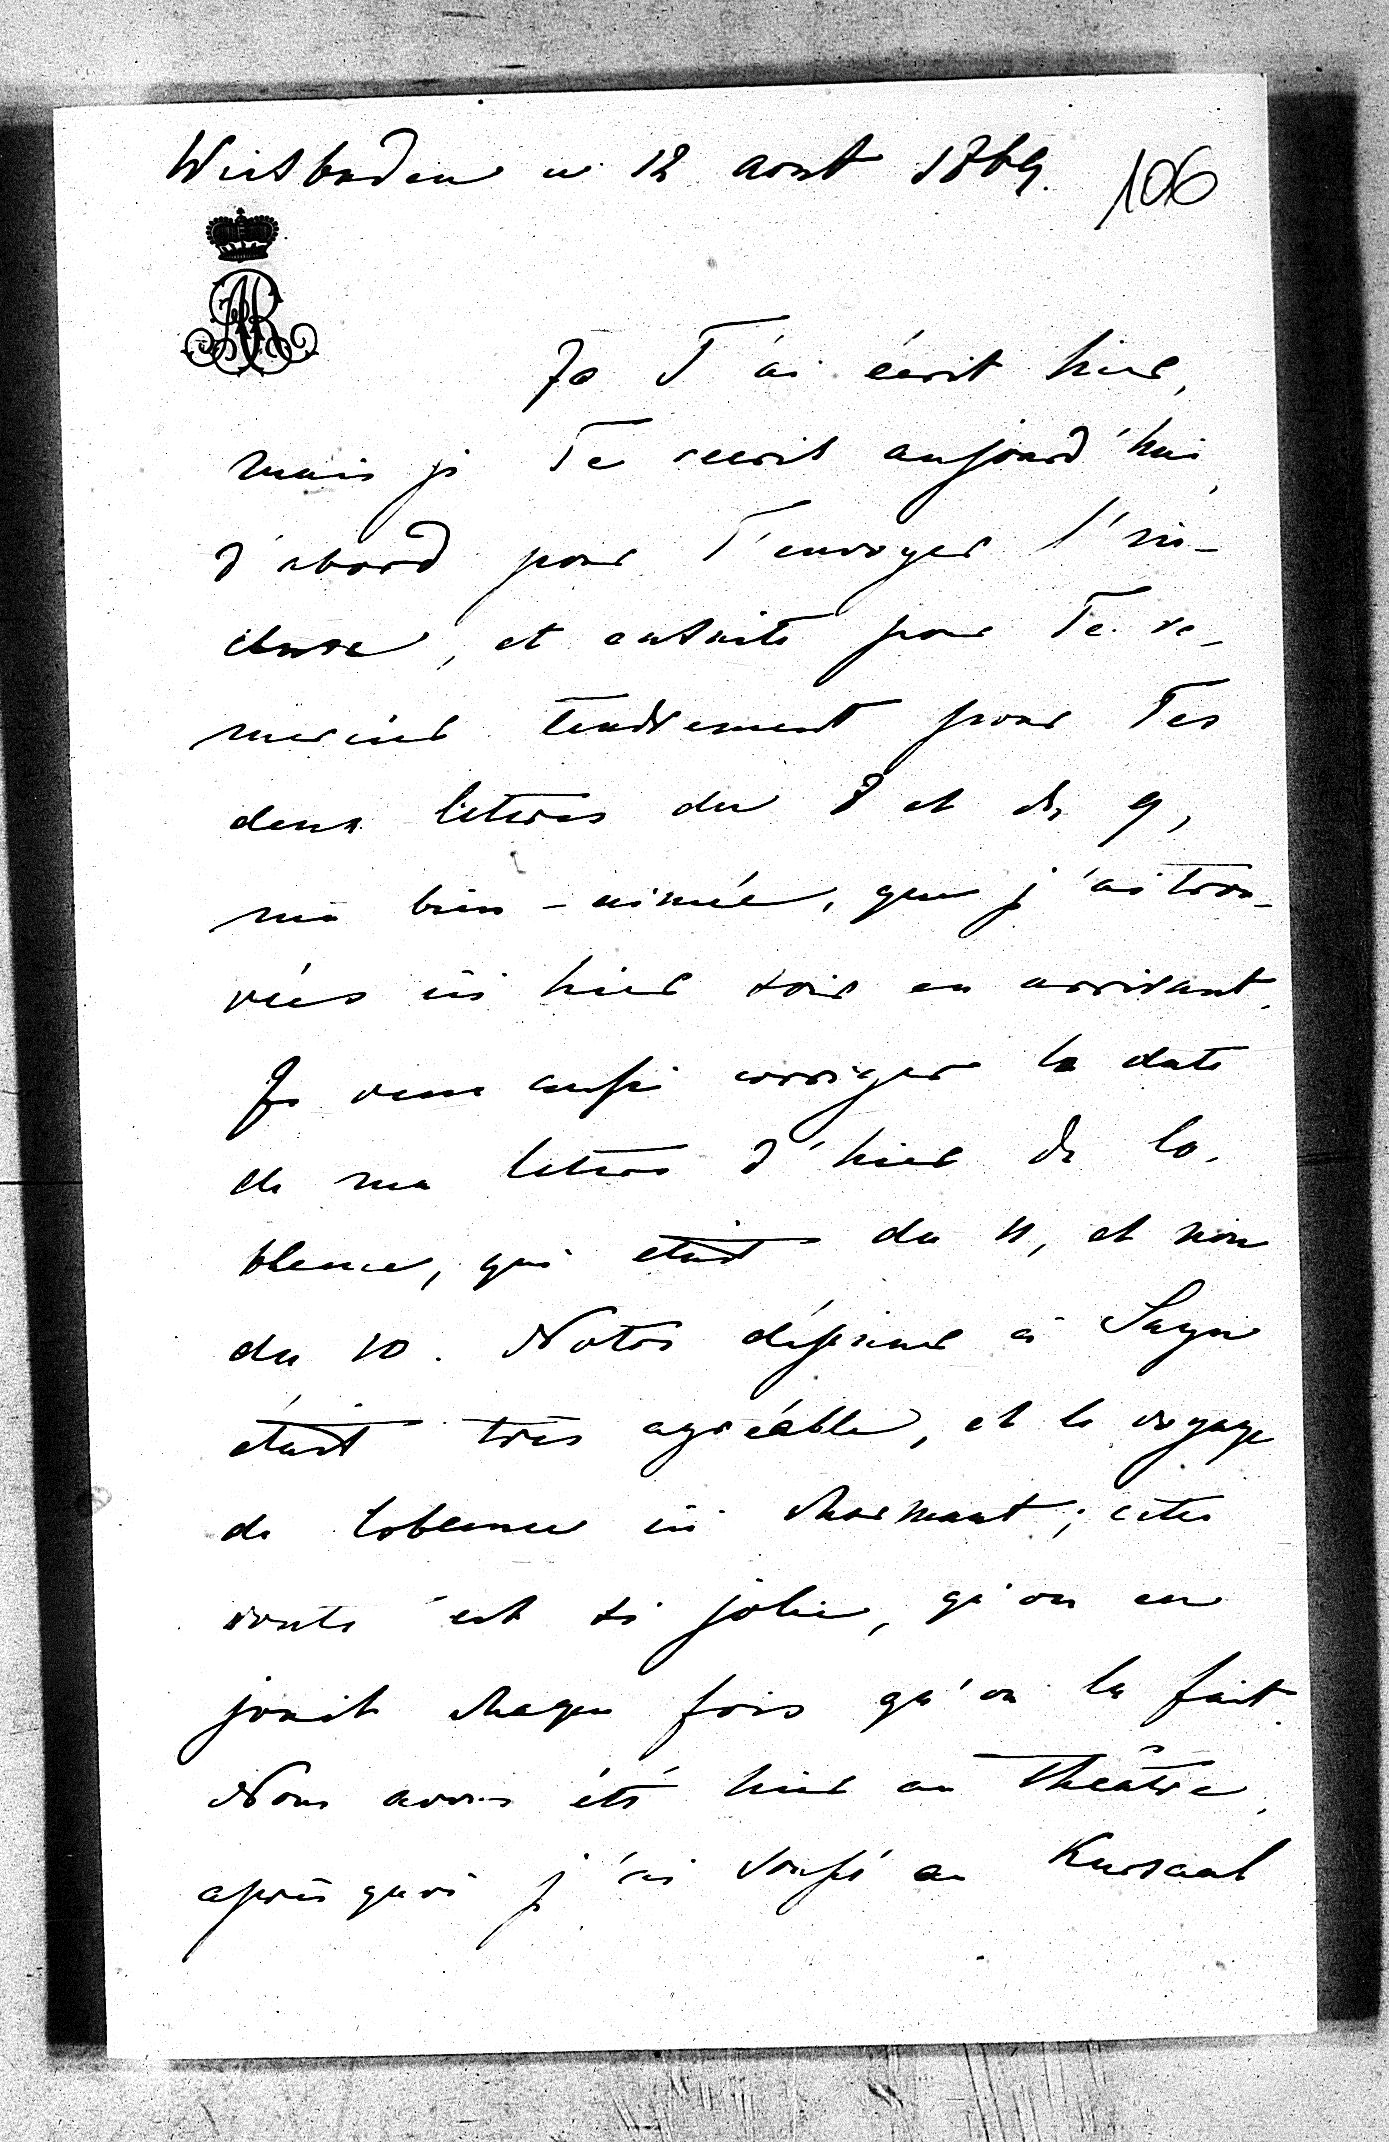 Wiesbaden ce 12 aout 1869.
106
Je T'ai écrit hier,
mais je Te reecris aujourd'hui,
d'abord pour T'envoyer l'in-
cluse, et ensuite pour Te re-
mercier tendrement pour Tes
deux lettres du 8 et du 9,
ma bien-aimée, que j'ai trou-
vées ici hier soir en arrivant.
Je veux aussi corriger la date
de ma lettre d'hier de Co-
blence, qui était du 11, et non
du 10. Notre déjeuner à Sayn
était très agréable, et le voyage
de Coblence ici charmant; cette
route est si jolie, qu'on en
jouit chaque fois qu'on la fait.
Nous avons été hier au Théâtre,
après quoi j'ai soupé au Kursaal